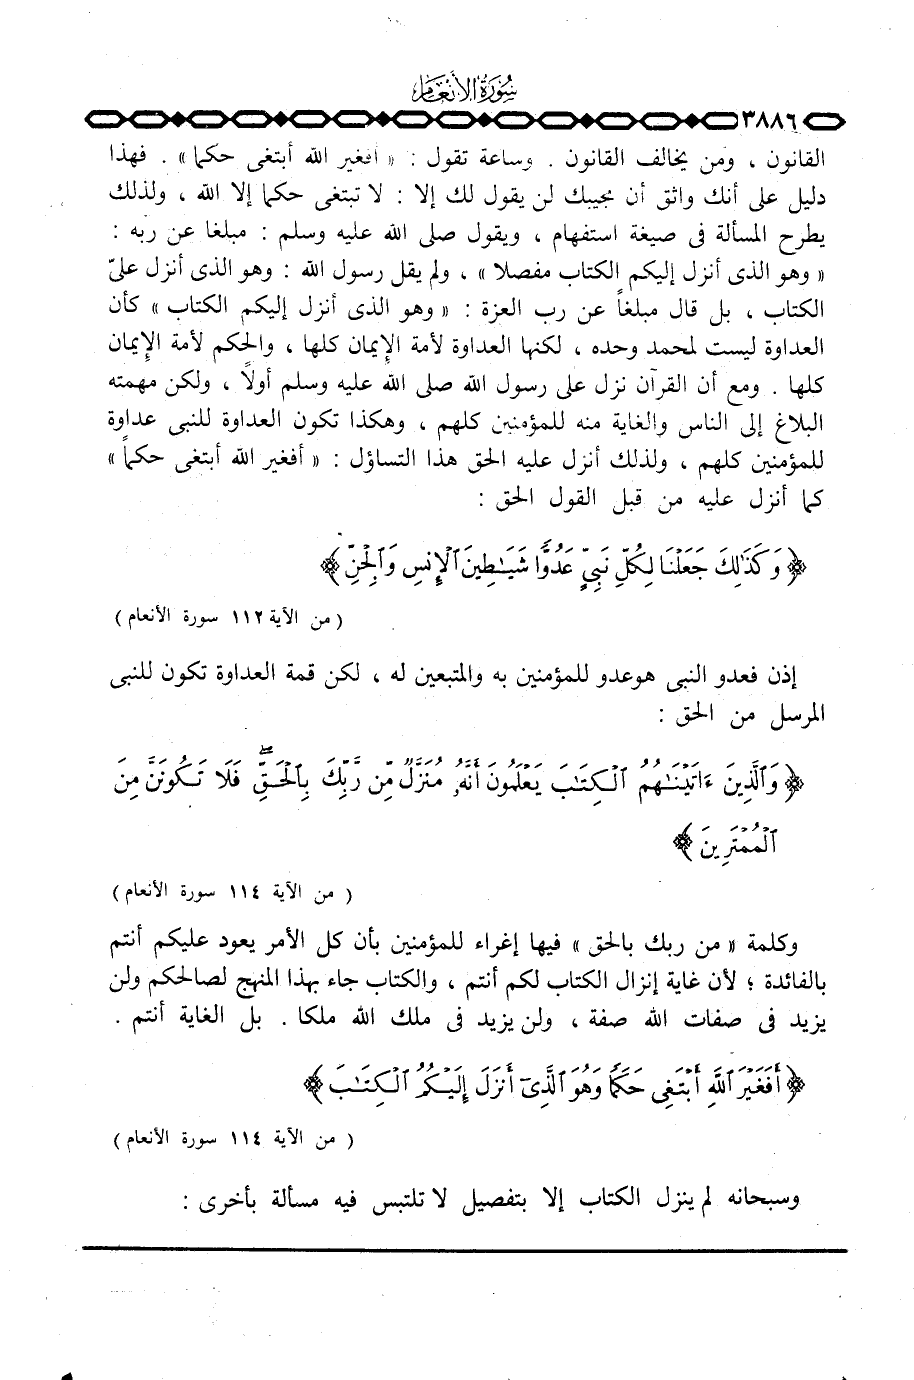 سورة الأنعام
٣٨٨٦
القانون ، ومن يخالف القانون . وساعة تقول : « أفغير الله أبتغى حكما » . فهذا
دليل على أنك واثق أن مجيبك لن يقول لك إلا : لا تبتغى حكما إلا الله ، ولذلك
يطرح المسألة فى صيغة استفهام ، ويقول صلى الله عليه وسلم : مبلغا عن ربه :
« وهو الذى أنزل إليكم الكتاب مفصلا » ، ولم يقل رسول الله : وهو الذى أنزل علىّ
الكتاب ، بل قال مبلغاً عن رب العزة : « وهو الذى أنزل إليكم الكتاب » كأن
العداوة ليست لمحمد وحده ، لكنها العداوة لأمة الإيمان كلها ، والحكم لأمة الإيمان
كلها . ومع أن القرآن نزل على رسول الله صلى الله عليه وسلم أولاً ، ولكن مهمته
البلاغ إلى الناس والغاية منه للمؤمنين كلهم ، وهكذا تكون العداوة للنبى عداوة
للمؤمنين كلهم ، ولذلك أنزل عليه الحق هذا التساؤل : « أفغير الله أبتغى حكماً »
كما أنزل عليه من قبل القول الحق :
﴿ وَكَذَٰلِكَ جَعَلْنَا لِكُلِّ نَبِيٍّ عَدُوًّا شَيَـٰطِينَ ٱلْإِنسِ وَٱلْجِنِّ ﴾
( من الآية ١١٢ سورة الأنعام )
إذن فعدو النبى هوعدو للمؤمنين به والمتبعين له ، لكن قمة العداوة تكون للنبى
المرسل من الحق :
﴿ وَٱلَّذِينَ ءَاتَيْنَـٰهُمُ ٱلْكِتَـٰبَ يَعْلَمُونَ أَنَّهُۥ مُنَزَّلٌ مِّن رَّبِّكَ بِٱلْحَقِّ ۖ فَلَا تَكُونَنَّ مِنَ
ٱلْمُمْتَرِينَ ﴾
( من الآية ١١٤ سورة الأنعام )
وكلمة « من ربك بالحق » فيها إغراء للمؤمنين بأن كل الأمر يعود عليكم أنتم
بالفائدة ؛ لأن غاية إنزال الكتاب لكم أنتم ، والكتاب جاء بهذا المنهج لصالحكم ولن
يزيد فى صفات الله صفة ، ولن يزيد فى ملك الله ملكا . بل الغاية أنتم .
﴿ أَفَغَيْرَ ٱللَّهِ أَبْتَغِى حَكَمًا وَهُوَ ٱلَّذِىٓ أَنزَلَ إِلَيْكُمُ ٱلْكِتَـٰبَ ﴾
( من الآية ١١٤ سورة الأنعام )
وسبحانه لم ينزل الكتاب إلا بتفصيل لا تلتبس فيه مسألة بأخرى :